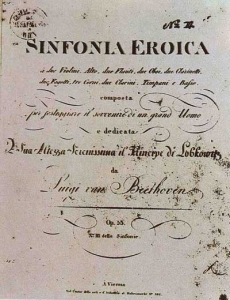 SINFONIA EROICA
a due Violini, Alto, due Flauti, due Oboi, due Clarinetti,
due Fagotti, tre Corni, due Clarini, Timpani e Basso
composta
per festeggiare il sovvenire di un grand Uomo
e dedicata
A Sua Altezza Serenissima il Principe di Lobkowitz
da
Luigi van Beethoven
Op. 55
No. III delle Sinfonie
A Vienna